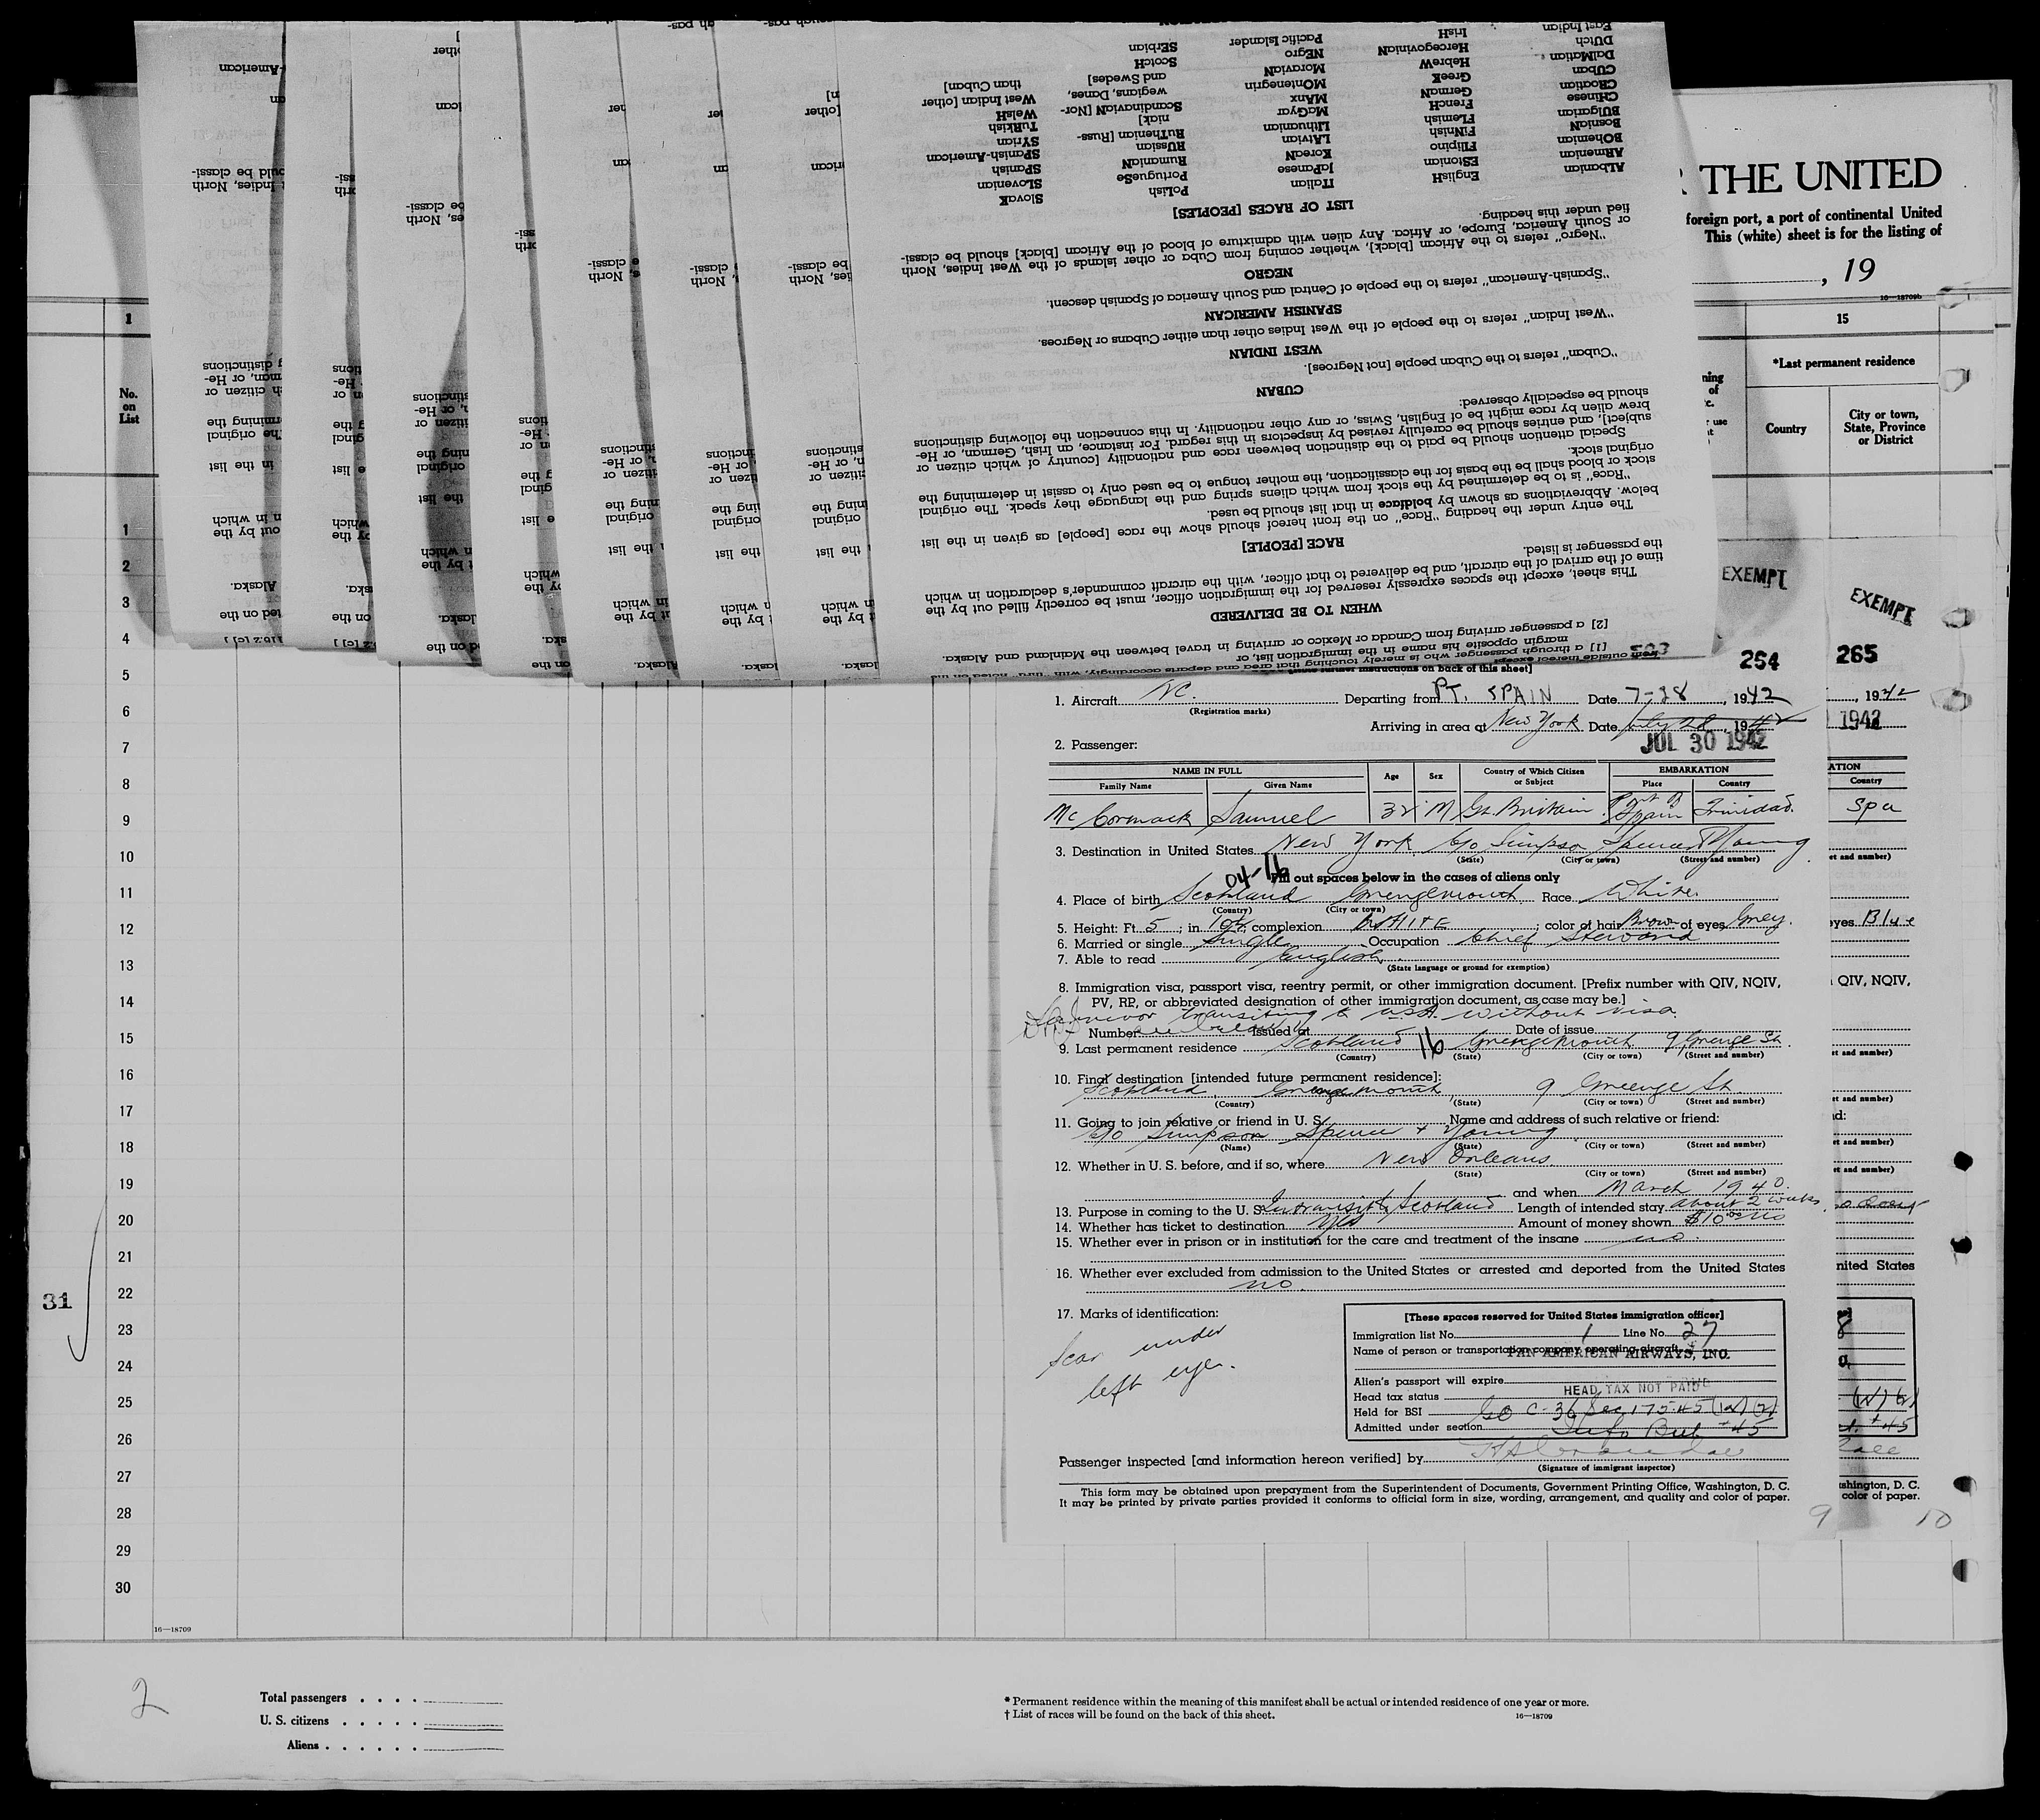 R THE UNITED
foreign port, a port of continental United
This (white) sheet is for the listing of
, 19
16—18709b
1
15
*Last permanent residence
No.
on
List
Country
City or town,
State, Province
or District
[2] a passenger arriving from Canada or Mexico or arriving in travel between the Mainland and Alaska.
WHEN TO BE DELIVERED
This sheet, except the spaces expressly reserved for the immigration officer, must be correctly filled out by the
time of the arrival of the aircraft, and be delivered to that officer, with the aircraft commander's declaration in which
the passenger is listed.
RACE [PEOPLE]
The entry under the heading "Race" on the front hereof should show the race [people] as given in the list
below. Abbreviations as shown by boldface in that list should be used.
"Race" is to be determined by the stock from which aliens spring and the language they speak. The original
stock or blood shall be the basis for the classification, the mother tongue to be used only to assist in determining the
original stock.
Special attention should be paid to the distinction between race and nationality [country of which citizen or
subject], and entries should be carefully revised by inspectors in this regard. For instance, an Irish, German, or He-
brew alien by race might be of English, Swiss, or any other nationality. In this connection the following distinctions
should be especially observed:
CUBAN
"Cuban" refers to the Cuban people [not Negroes].
WEST INDIAN
"West Indian" refers to the people of the West Indies other than either Cubans or Negroes.
SPANISH AMERICAN
"Spanish-American" refers to the people of Central and South America of Spanish descent.
NEGRO
"Negro" refers to the African [black], whether coming from Cuba or other islands of the West Indies, North
or South America, Europe, or Africa. Any alien with admixture of blood of the African [black] should be classi-
fied under this heading.
LIST OF RACES [PEOPLES]
ALbanian EngliSH ITalian PoLish SlovaK
ARmenian EStonian JaPanese PortugueSe SLovenian
BOhemian FIlipino KoreaN RumaniaN SPanish
BosniaN FiNnisH LAtvian RUssian SPanish-American
BUlgarian FLemish LIthuanian RuThenian [Russ- SYrian
CHinese FrencH MaGyar niak] TuRkish
CRoatian GermaN MAnx ScandinaviaN [Nor- WelsH
CUban GreeK MOntenegrin wegians, Danes, West Indian [other
DalMatian HebreW MoraviaN and Swedes] than Cuban]
DUtch HercegoviniaN NEgro ScotcH
East Indian IrisH Pacific Islander SErbian
EXEMPT
EXEMPT
264
265
1. Aircraft NC. Departing from PT. SPAIN Date 7-28, 1942
(Registration marks)
Arriving in area at New York Date July 28, 1942
JUL 30 1942
2. Passenger:
NAME IN FULL Age Sex Country of Which Citizen or Subject EMBARKATION
Family Name Given Name Place Country
McCormack Samuel 32 M Gt. Britain Port of Spain Trinidad.
3. Destination in United States New York c/o Simpson Spence & Young
(State) (City or town) (Street and number)
04-16
Fill out spaces below in the cases of aliens only
4. Place of birth Scotland Grengemouth Race White
(Country) (City or town)
5. Height: Ft. 5; in. 10½ complexion WHITE; color of hair Brown of eyes Grey.
6. Married or single Single Occupation Chief Steward
7. Able to read English.
(State language or ground for exemption)
8. Immigration visa, passport visa, reentry permit, or other immigration document. [Prefix number with QIV, NQIV,
PV, RP, or abbreviated designation of other immigration document, as case may be.]
Survivor transiting U.S.A. without visa.
Number Issued at Date of issue
9. Last permanent residence Scotland 16 Grengemouth 9 Grenge St.
(Country) (State) (City or town) (Street and number)
10. Final destination [intended future permanent residence]:
Scotland Grengemouth 9 Greenge St.
(Country) (State) (City or town) (Street and number)
11. Going to join relative or friend in U. S. Name and address of such relative or friend:
c/o Simpson Spence & Young
(Name) (State) (City or town) (Street and number)
12. Whether in U. S. before, and if so, where New Orleans.
(State) (City or town) (Street and number)
and when March 1940.
13. Purpose in coming to the U. S. In transit to Scotland Length of intended stay about 2 weeks
14. Whether has ticket to destination Yes Amount of money shown $10.00
15. Whether ever in prison or in institution for the care and treatment of the insane no.
16. Whether ever excluded from admission to the United States or arrested and deported from the United States
no.
17. Marks of identification:
Scar under
left eye.
[These spaces reserved for United States immigration officer]
Immigration list No. 1 Line No. 27
Name of person or transportation company operating aircraft
PAN AMERICAN AIRWAYS, INC.
Alien's passport will expire
Head tax status HEAD TAX NOT PAID
Held for BSI GO C-36 Sec 175.45 (w) (2)
Admitted under section Info Bul #45
Passenger inspected [and information hereon verified] by
(Signature of immigrant inspector)
This form may be obtained upon prepayment from the Superintendent of Documents, Government Printing Office, Washington, D. C.
It may be printed by private parties provided it conforms to official form in size, wording, arrangement, and quality and color of paper.
9 10
1
2
3
4
5
6
7
8
9
10
11
12
13
14
15
16
17
18
19
20
21
22
23
24
25
26
27
28
29
30
31
16—18709
2
Total passengers
U. S. citizens
Aliens
* Permanent residence within the meaning of this manifest shall be actual or intended residence of one year or more.
† List of races will be found on the back of this sheet.
16—18709